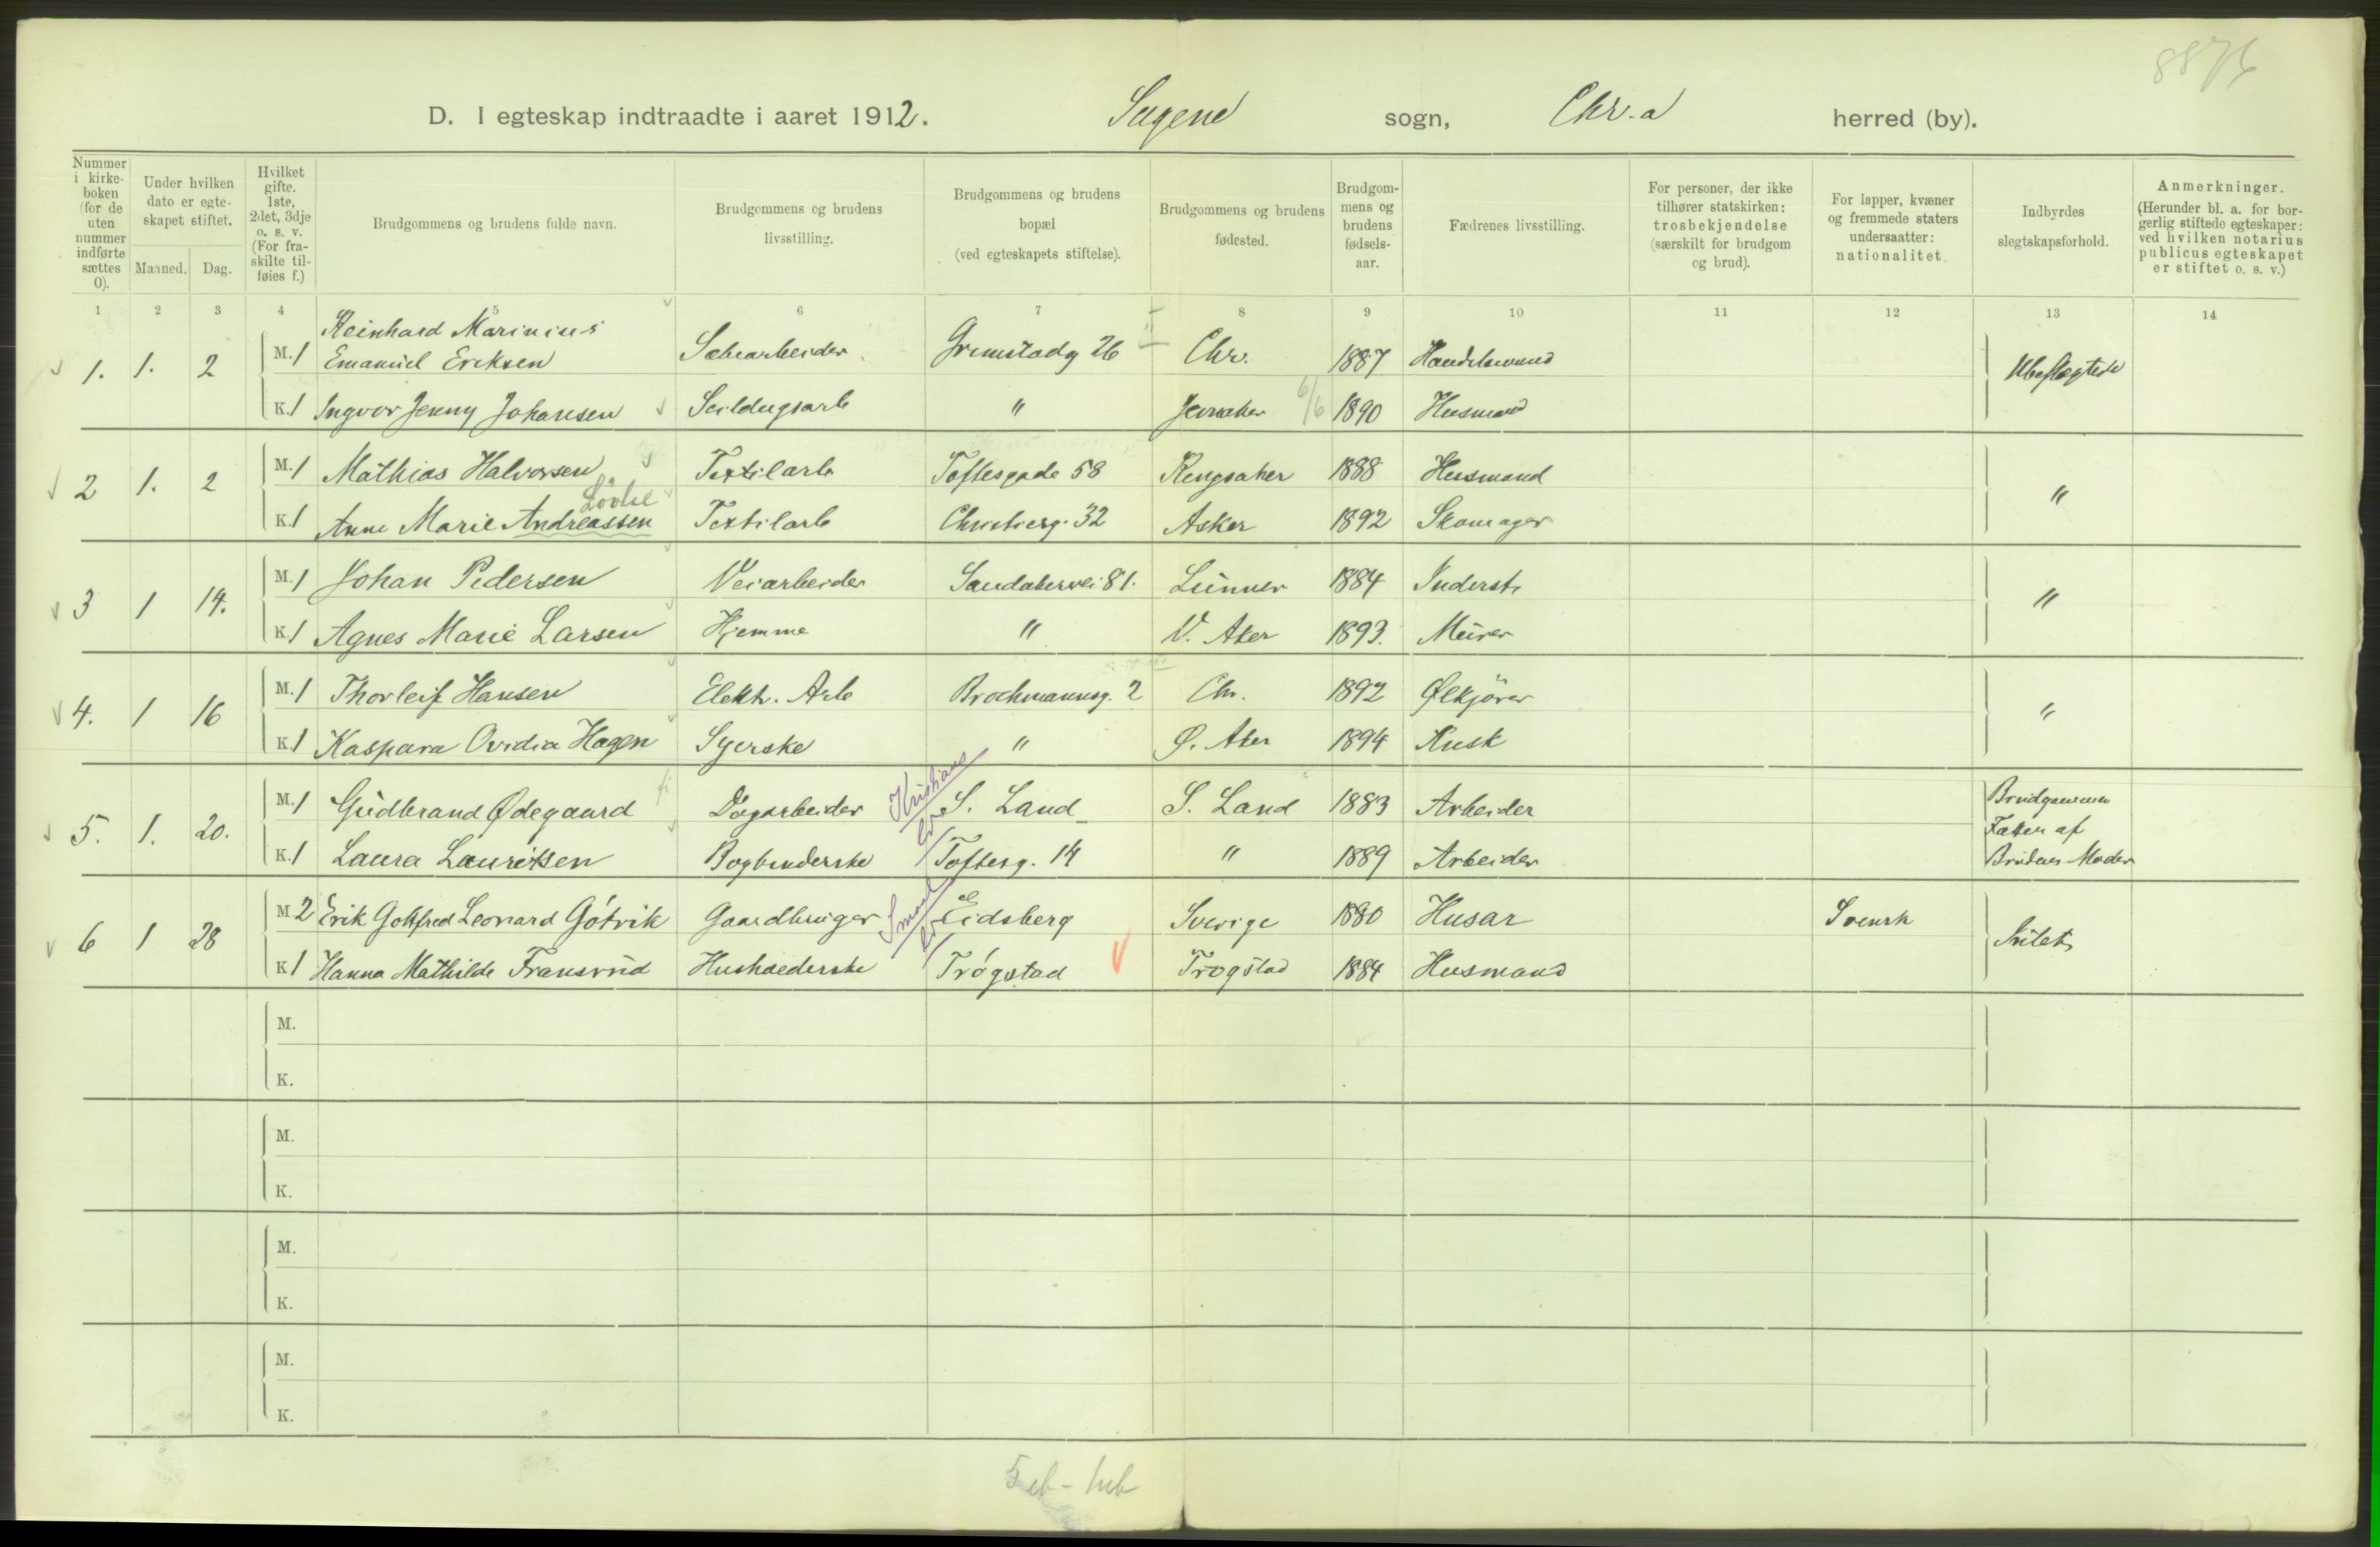 D. I egteskap indtraadte i aaret 1912. Sagene sogn, Chr.a herred (by).
Nummer i kirkeboken (for de uten nummer indførte sættes 0).
Under hvilken dato er egteskapet stiftet.
Maaned. Dag.
Hvilket gifte. 1ste, 2det, 3dje o. s. v. (For fraskilte tilføies f.)
Brudgommens og brudens fulde navn.
Brudgommens og brudens livsstilling.
Brudgommens og brudens bopæl (ved egteskapets stiftelse).
Brudgommens og brudens fødested.
Brudgommens og brudens fødselsaar.
Fædrenes livsstilling.
For personer, der ikke tilhører statskirken: trosbekjendelse (særskilt for brudgom og brud).
For lapper, kvæner og fremmede staters undersaatter: nationalitet.
Indbyrdes slegtskapsforhold.
Anmerkninger. (Herunder bl. a. for borgerlig stiftede egteskaper: ved hvilken notarius publicus egteskapet er stiftet o. s. v.)
1 2 3 4 5 6 7 8 9 10 11 12 13 14
Reinhard Marinius
1. 1. 2 M. 1 Emanuel Eriksen Grimstadg 26 Chr. 1887 Handelsmand Ubeslægtede
K. 1 Ingvor Jenny Johansen Seildugsarb " 6/6 1890 Husmand
2 1. 2 M. 1 Mathias Halvorsen Textilarb Toftesgade 58 Ringsaker 1888 Husmand "
Løvlie
K. 1 Anne Marie Andreassen Textilarb Christiesg. 32 Asker 1892 Skomager
3 1 14. M. 1 Johan Pedersen Veiarbeider Sandakervei 81. Lunner 1884 Inderst "
K. 1 Agnes Marie Larsen Hjemme " V. Aker 1893. Murer
4. 1 16 M. 1 Thorleif Hansen Elektr. Arb Brochmannsg. 2 Chr. 1892 Ølkjører "
K. 1 Kaspara Ovidia Hagen Syerske " Ø. Aker 1894 Kusk
5. 1. 20. M. 1 Gudbrand Ødegaard Dagarbeider Kristians S. Land S. Land 1883 Arbeider Brudgommen Fætter af Brudens Moder
K. 1 Laura Lauritsen Bogbinderske Toftesg. 14 " 1889 Arbeider
6 1 28 M. 2 Erik Gottfred Leonard Götvik Gaardbruger Smaal Eidsberg Sverige 1880 Husar Svensk
K. 1 Hanna Mathilde Fransrud Husholderske Trøgstad Trøgstad 1884 Husmand
M.
K.
M.
K.
M.
K.
M.
K.